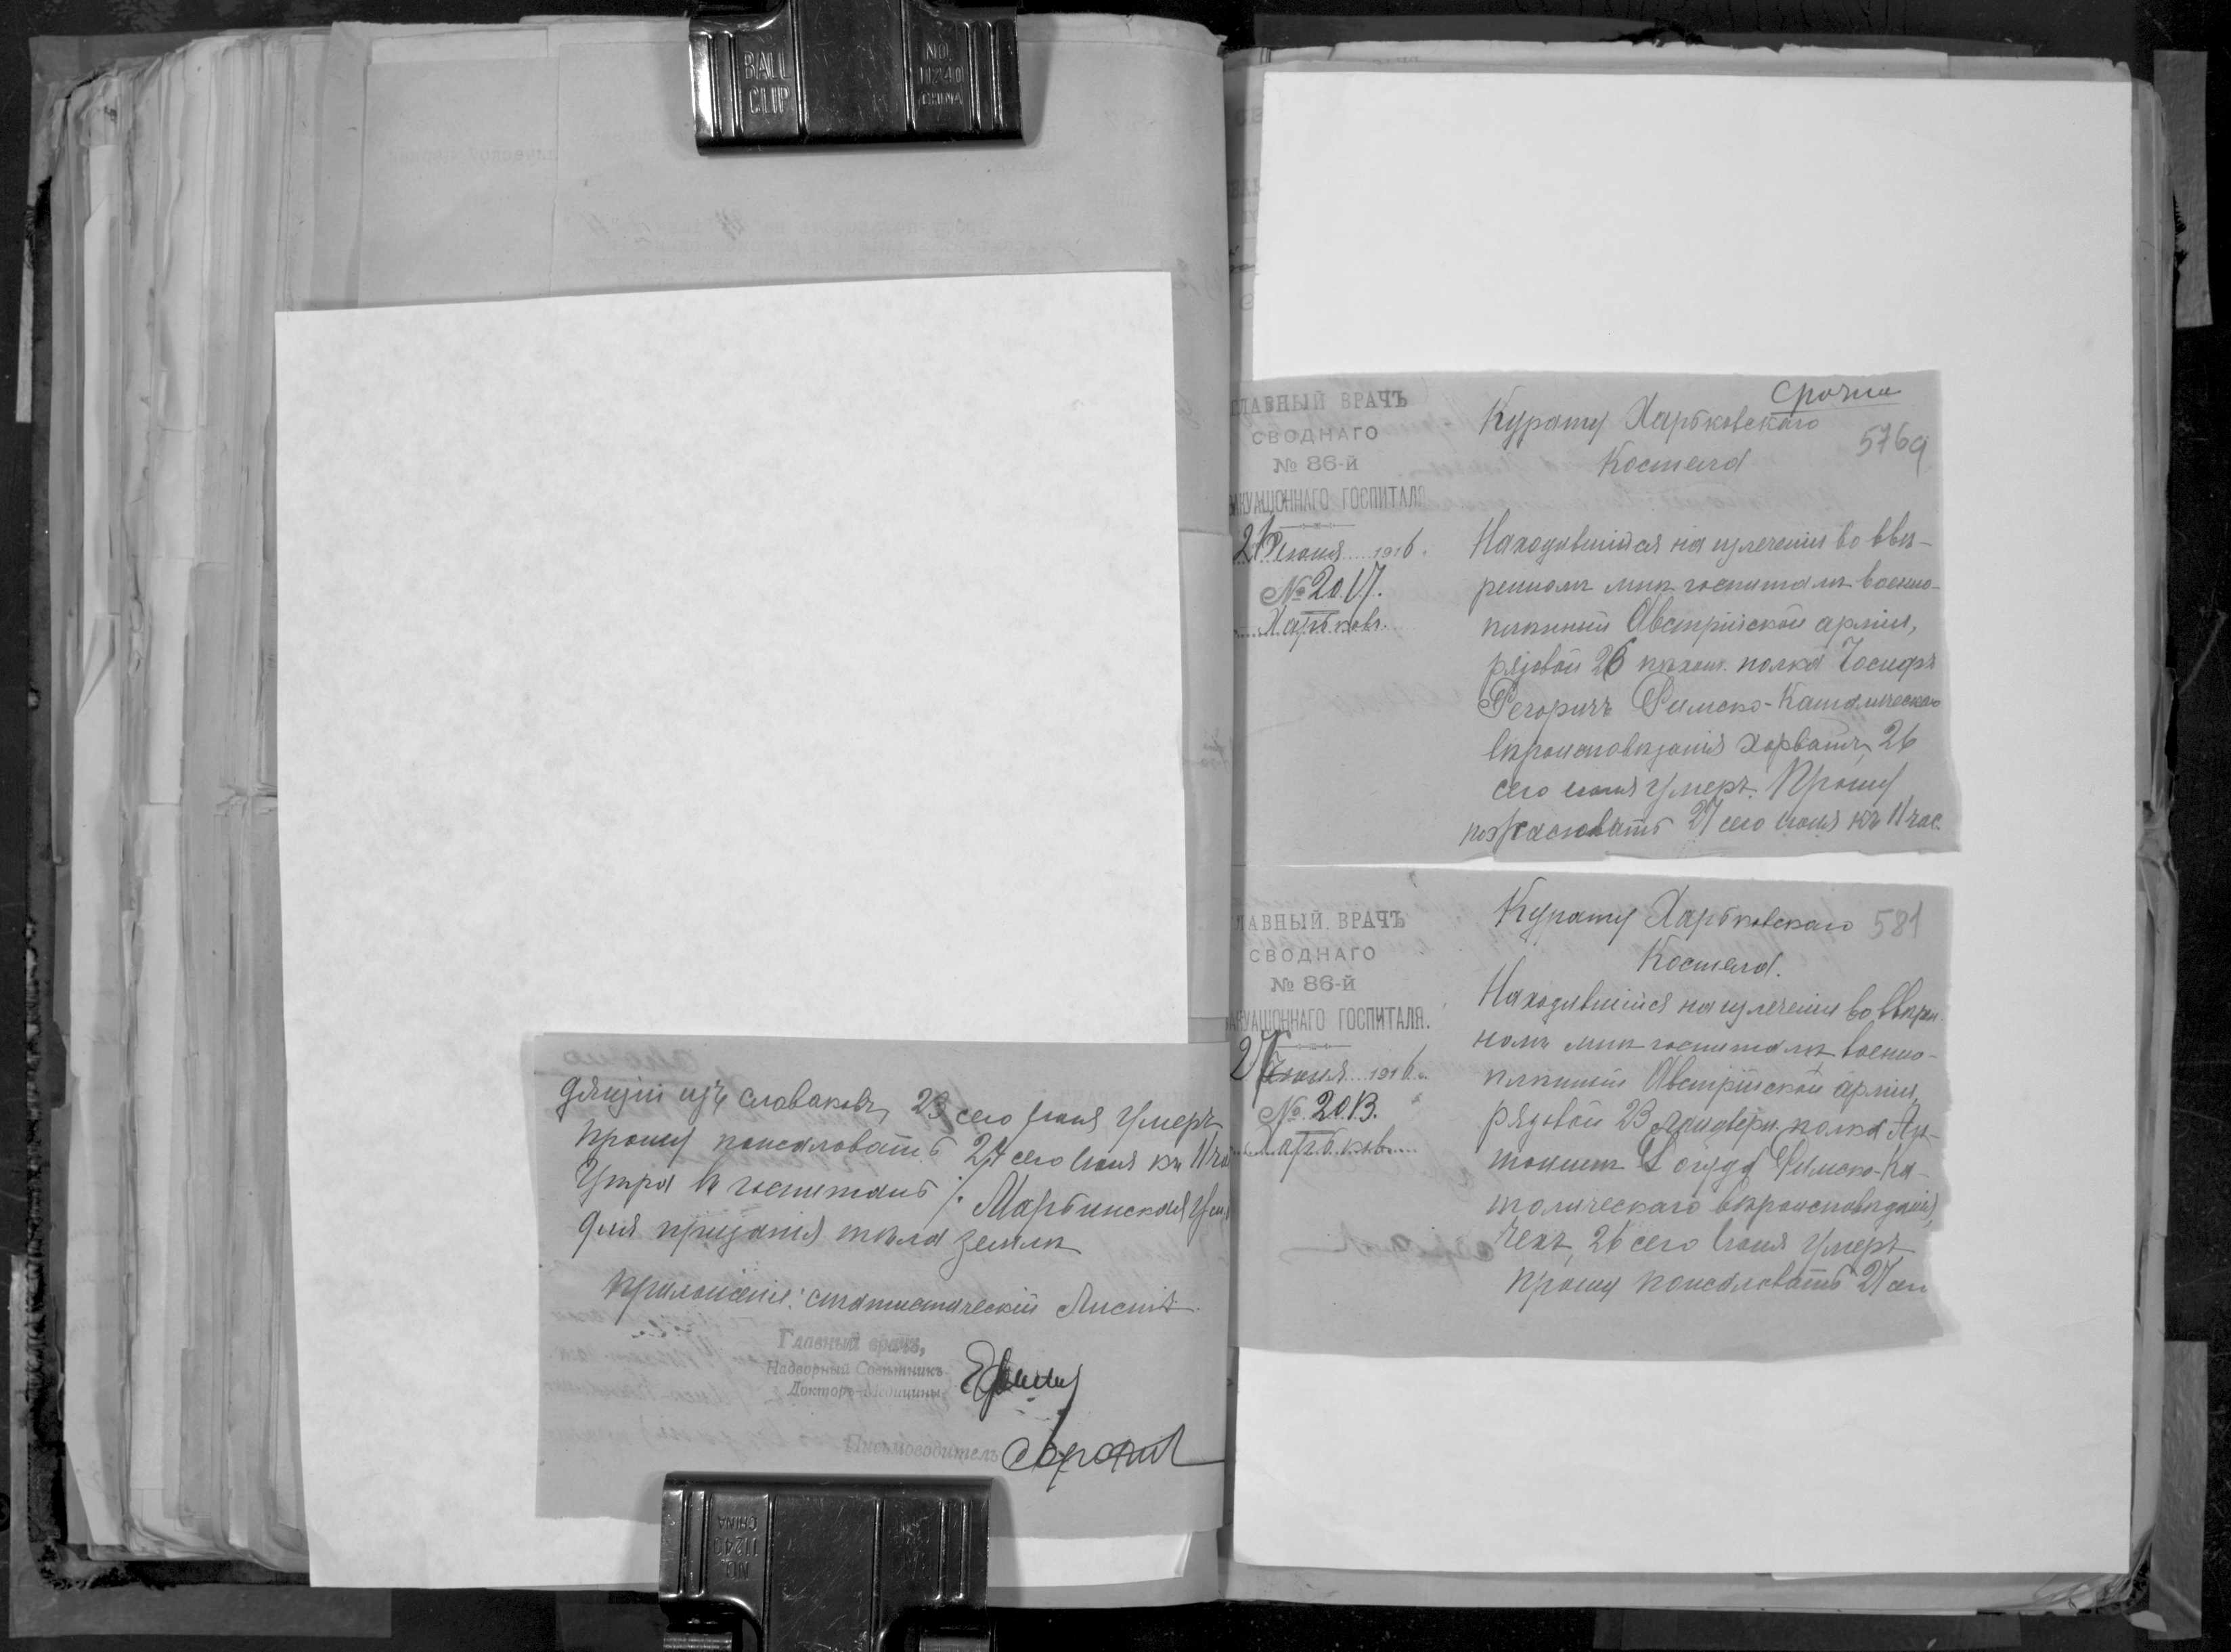 BALL
CLIP
NO.
11240
CHINA
дящій изъ славаковъ, 23 сего Іюня Умеръ
прошу пожаловать 24 сего Іюня къ 11 ча
Утра въ госпиталь /. Марьинская Ули
для преданія тѣла землѣ
приложеніе: статистическій Листъ.
Главный врачъ,
Надворный Совѣтникъ
Докторъ-Медицины
Письмоводитель
NO.
11240
CHINA
ГЛАВНЫЙ ВРАЧЪ
СВОДНАГО
№ 86-й
ВАКУАЦІОННАГО ГОСПИТАЛЯ
Іюня 1916.
№ 2017.
Харьковъ.
срочно
Курату Харьковскаго
576а
Костела
Находившійся на излеченіи во ввѣ-
ренномъ мнѣ госпиталѣ военно-
плѣнный Австрійской арміи,
рядовой 26 пѣхот. полка Іосифъ
Регоричъ Римско-Католическаго
вѣроисповѣданія хорватъ, 26
сего Іюня Умеръ. Прошу
пожаловать 27 сего Іюня къ 11 час.
ЛАВНЫЙ ВРАЧЪ
СВОДНАГО
№ 86-й
АКУАЦІОННАГО ГОСПИТАЛЯ.
27 Іюня 1916.
№ 2013.
Харьковъ
Курату Харьковскаго 581
Костела.
Находившійся на излеченіи во ввѣрен
номъ мнѣ госпиталѣ военно-
плѣнный Австрійской арміи,
рядовой 23 Ландверн. полка Ан-
Римско-Ка-
толическаго вѣроисповѣданія,
Чехъ, 26 сего Іюня Умеръ,
прошу пожаловать 27 сег